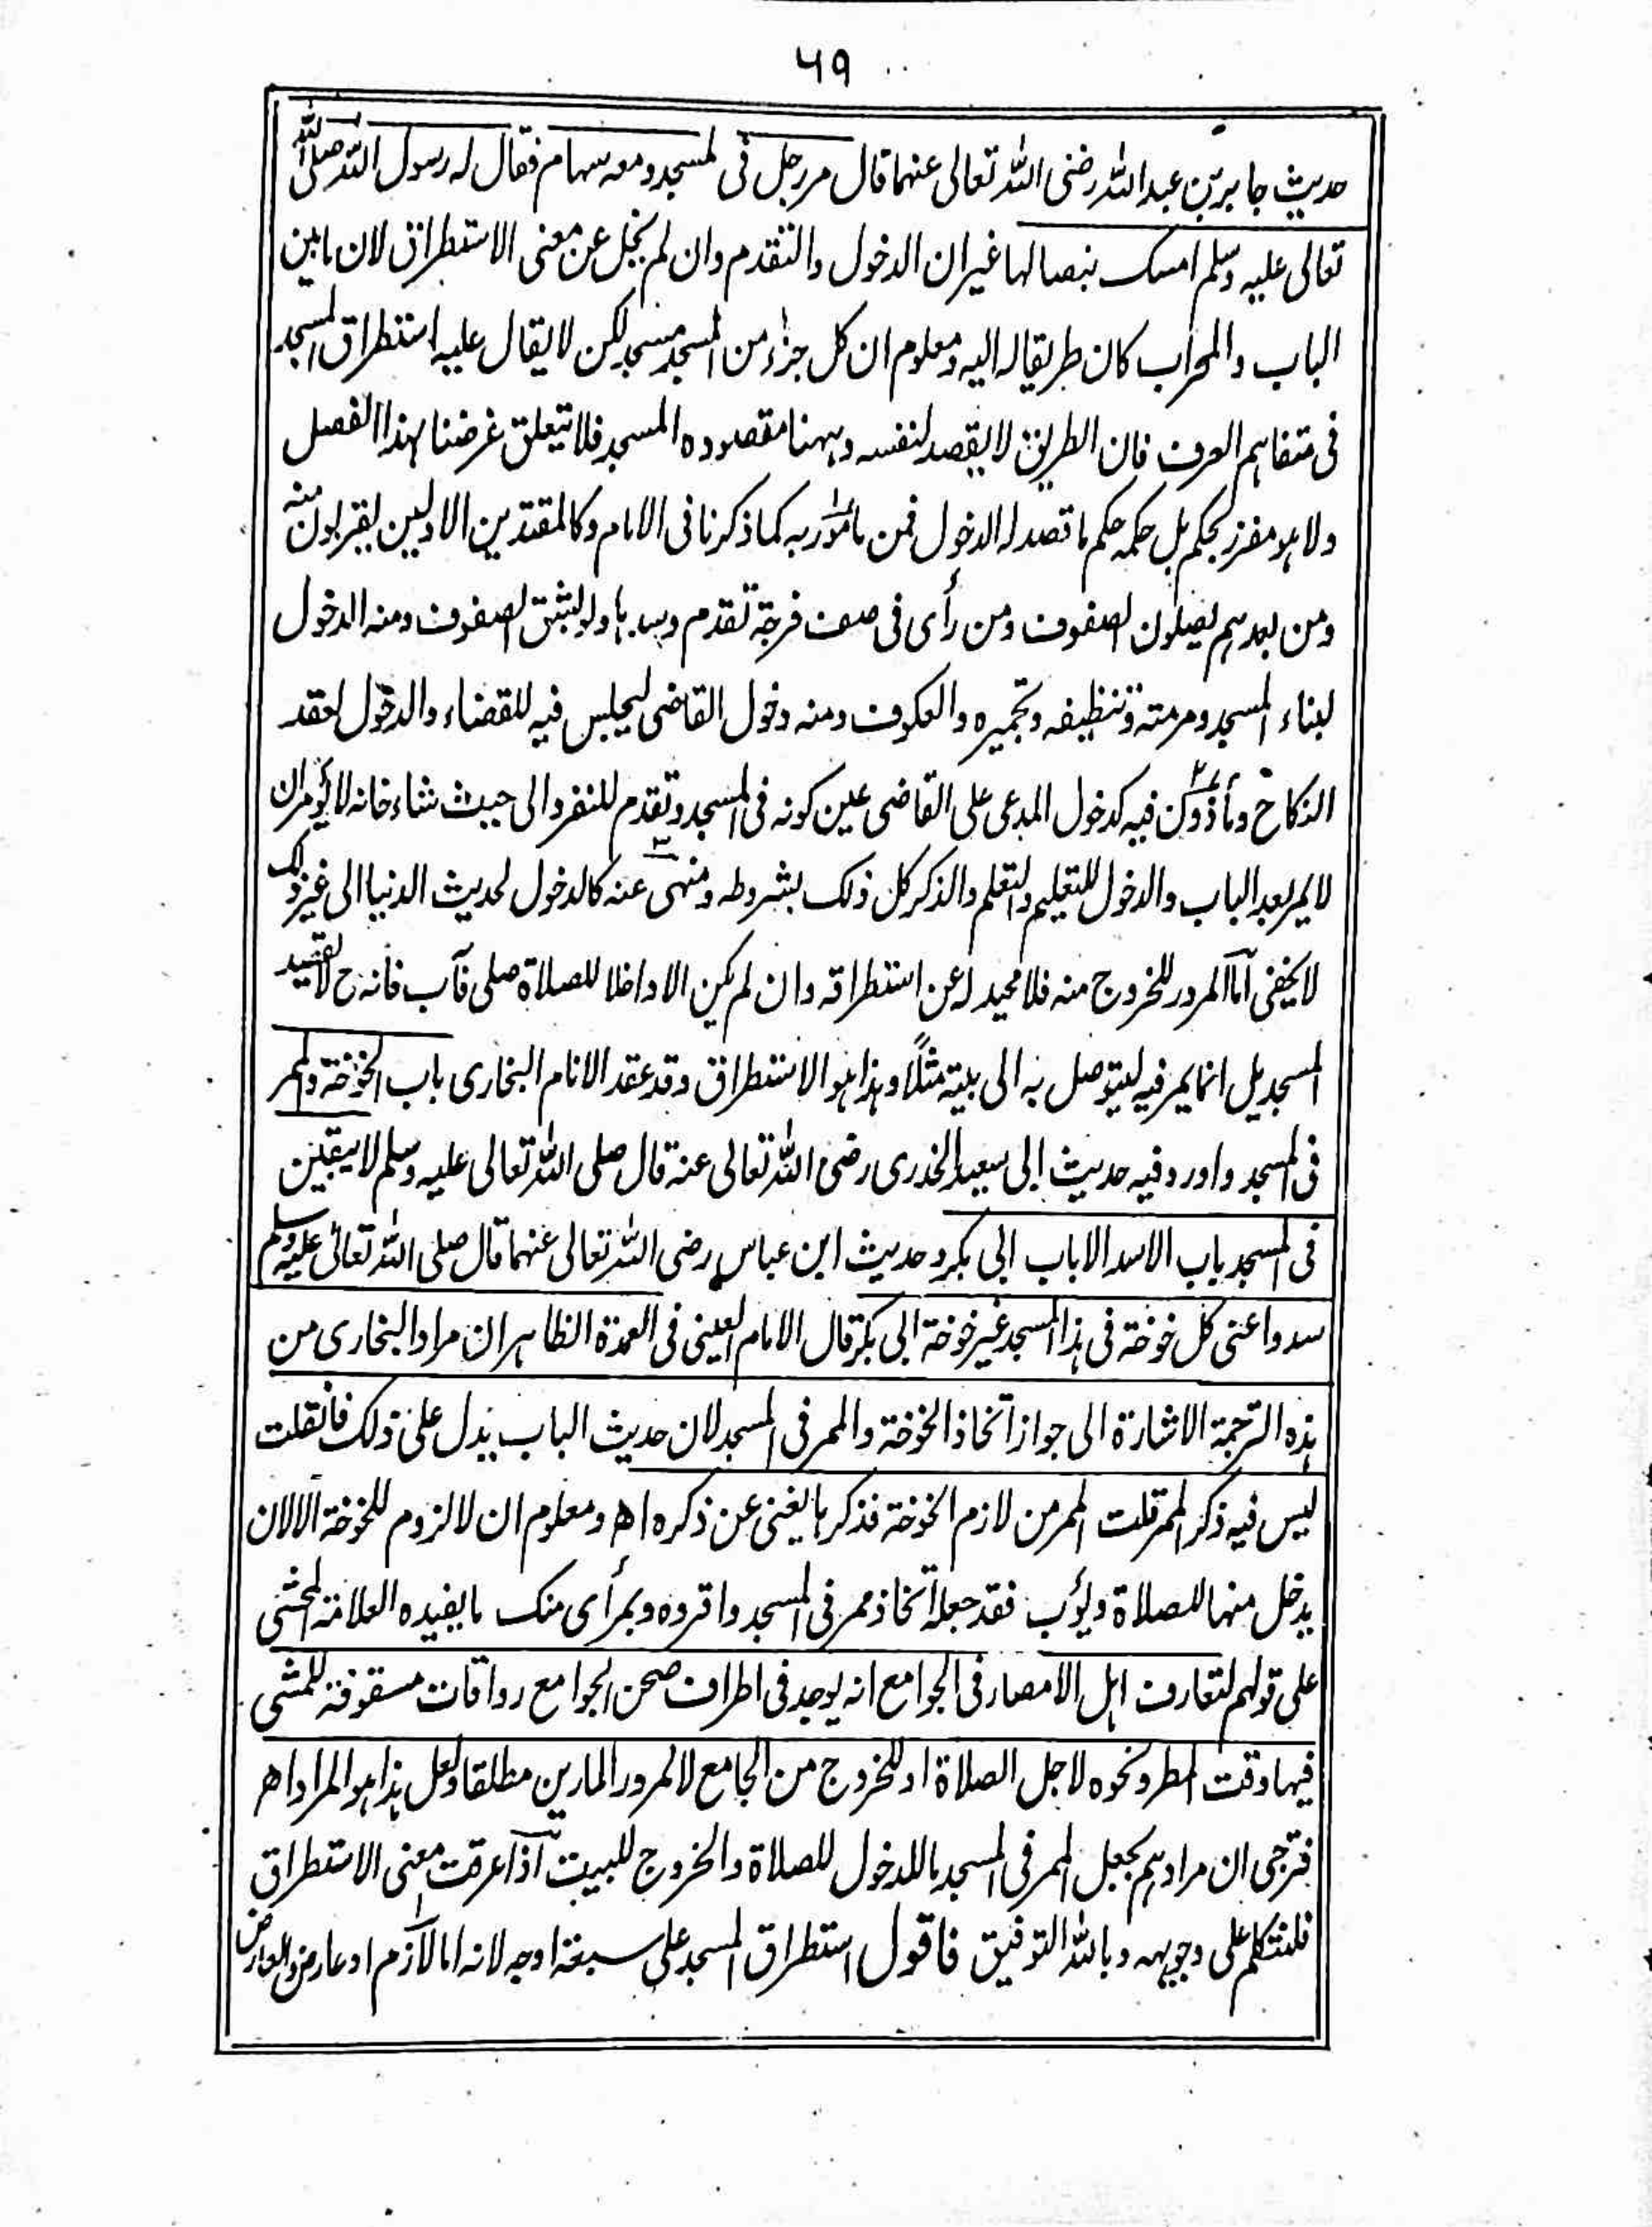 ٥٩
حديث جابر بن عبد الله رضى الله تعالى عنهما قال مر رجل فى المسجد ومعه سهام فقال له رسول الله صلى الله
تعالى عليه وسلم امسك بنصالها غيران الدخول والتقدم وان لم يخل عن معنى الاستطراق لان مابين
الباب والمحراب كان طريقا له اليه ومعلوم ان كل جزء من المسجد مسجد لكن لا يقال عليه استطراق المسجد
فى متفاهم العرف فان الطريق لا يقصد لنفسه وههنا مقصوده المسجد فلا يتعلق غرضنا بهذا الفصل
ولا هو مفرز بحكم بل حكمه حكم ما قصد له الدخول فمن مأمور به كما ذكرنا فى الامام وكالمقتدين الاولين يقربون منه
ومن بعدهم يصلون الصفوف ومن رأى فى صف فرجة تقدم وسدها ولو بشق الصفوف ومنه الدخول
لبناء المسجد ومرمته وتنظيفه وتجميره والعكوف ومنه دخول القاضى ليجلس فيه للقضاء والدخول لعقد
النكاح ومأذون فيه كدخول المدعى على القاضى عين كونه فى المسجد وتقدم للنفرد الى حيث شاء فانه لا يؤمر ان
لا يمر بعد الباب والدخول للتعليم والتعلم والذكر كل ذلك بشروطه ومنهى عنه كالدخول لحديث الدنيا الى غير ذلك
لا يخفى اما المرور للخروج منه فلا محيد له عن استطراقه وان لم يكن الا داخلا للصلاة صلى فآب فانه ح لا يقصد
المسجد بل انما يمر فيه ليتوصل به الى بيته مثلاً وهذا هو الاستطراق وقد عقد الامام البخارى باب الخوخة والممر
فى المسجد واورد فيه حديث ابى سعيد الخدرى رضى الله تعالى عنه قال صلى الله تعالى عليه وسلم لا يبقين
فى المسجد باب الاسد الا باب ابى بكر وحديث ابن عباس رضى الله تعالى عنهما قال صلى الله تعالى عليه وسلم
سدوا عنى كل خوخة فى هذا المسجد غير خوخة ابى بكر قال الامام العينى فى العمدة الظاهر ان مراد البخارى من
هذه الترجمة الاشارة الى جواز اتخاذ الخوخة والممر فى المسجد لان حديث الباب يدل على ذلك فان قلت
ليس فيه ذكر الممر قلت الممر من لازم الخوخة فذكرها يغنى عن ذكره اه ومعلوم ان لا لزوم للخوخة الا لان
يدخل منها للصلاة ويؤب فقد جعله اتخاذ ممر فى المسجد واقروه وبمرأى منك ما يفيده العلامة المحشى
على قولهم لتعارف اهل الامصار فى الجوامع انه يوجد فى اطراف صحن الجوامع رواقات مسقوفة للمشى
فيها وقت المطر ونحوه لاجل الصلاة او للخروج من الجامع لا لمرور المارين مطلقا ولعل هذا هو المراد اه
فترجى ان مرادهم بجعل الممر فى المسجد ما للدخول للصلاة والخروج للبيت اذا عرفت معنى الاستطراق
فلنتكلم على وجوهه وبالله التوفيق فاقول استطراق المسجد على سبعة اوجه لانه اما لازم او عارض والعارض